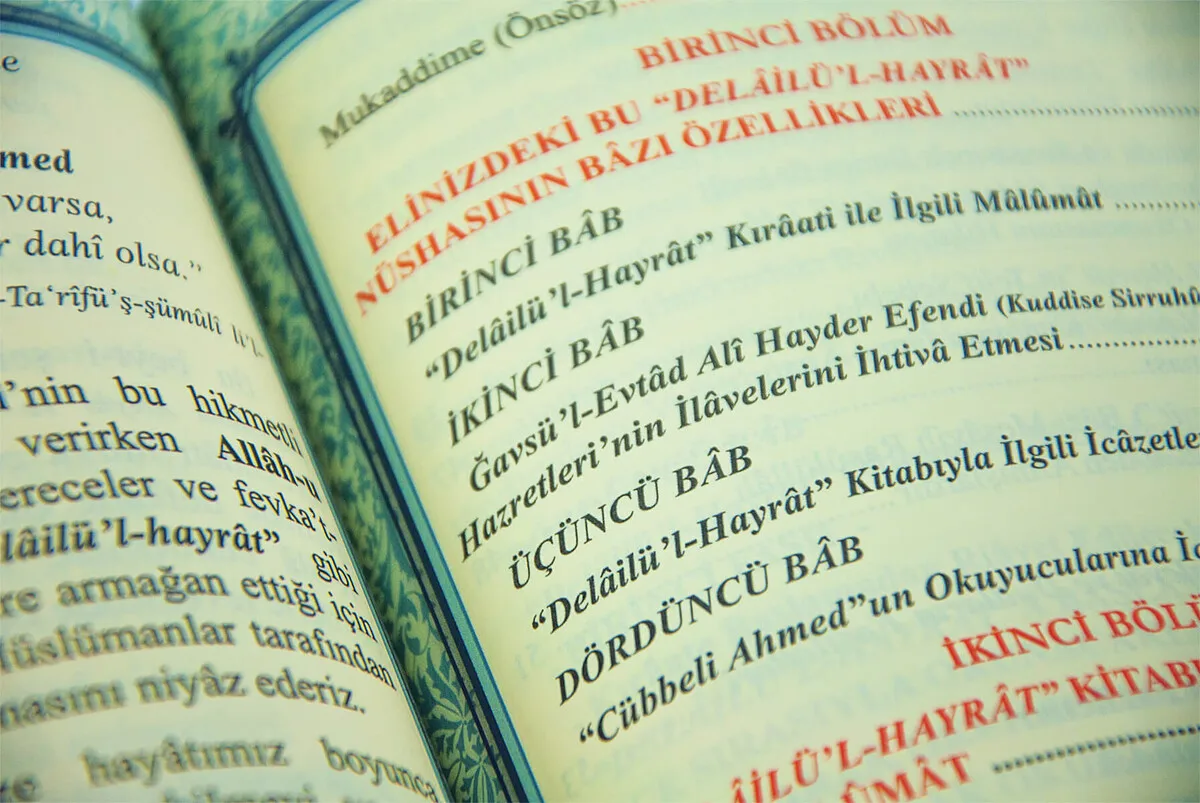 e
med
varsa,
r dahî olsa.”
-Ta‘rîfü’ş-şümûlî li’l-
i’nin bu hikmetli
verirken Allâh-u
ereceler ve fevka’t-
lâilü’l-hayrât” gibi
re armağan ettiği için
üslümanlar tarafından
nasını niyâz ederiz.
hayâtımız boyunca
Mukaddime (Önsöz)
BİRİNCİ BÖLÜM
ELİNİZDEKİ BU “DELÂİLÜ’L-HAYRÂT”
NÜSHASININ BÂZI ÖZELLİKLERİ
BİRİNCİ BÂB
“Delâilü’l-Hayrât” Kırâati ile İlgili Mâlûmât
İKİNCİ BÂB
Ğavsü’l-Evtâd Alî Hayder Efendi (Kuddise Sirruhû
Hazretleri’nin İlâvelerini İhtivâ Etmesi
ÜÇÜNCÜ BÂB
“Delâilü’l-Hayrât” Kitabıyla İlgili İcâzetler
DÖRDÜNCÜ BÂB
“Cübbeli Ahmed”un Okuyucularına İc
İKİNCİ BÖLÜ
ÂİLÜ’L-HAYRÂT” KİTAB
ÛMÂT